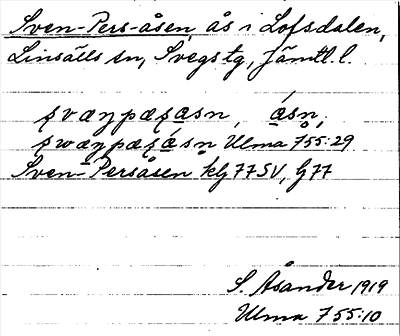 Sven-Pers-åsen, ås i Lofsdalen,
Linsälls sn, Svegs tg, Jämtl. l.
Ulma 755:29
Sven-Persåsen klg 77 SV, G77
S. Åsander 1919
Ulma 755:10